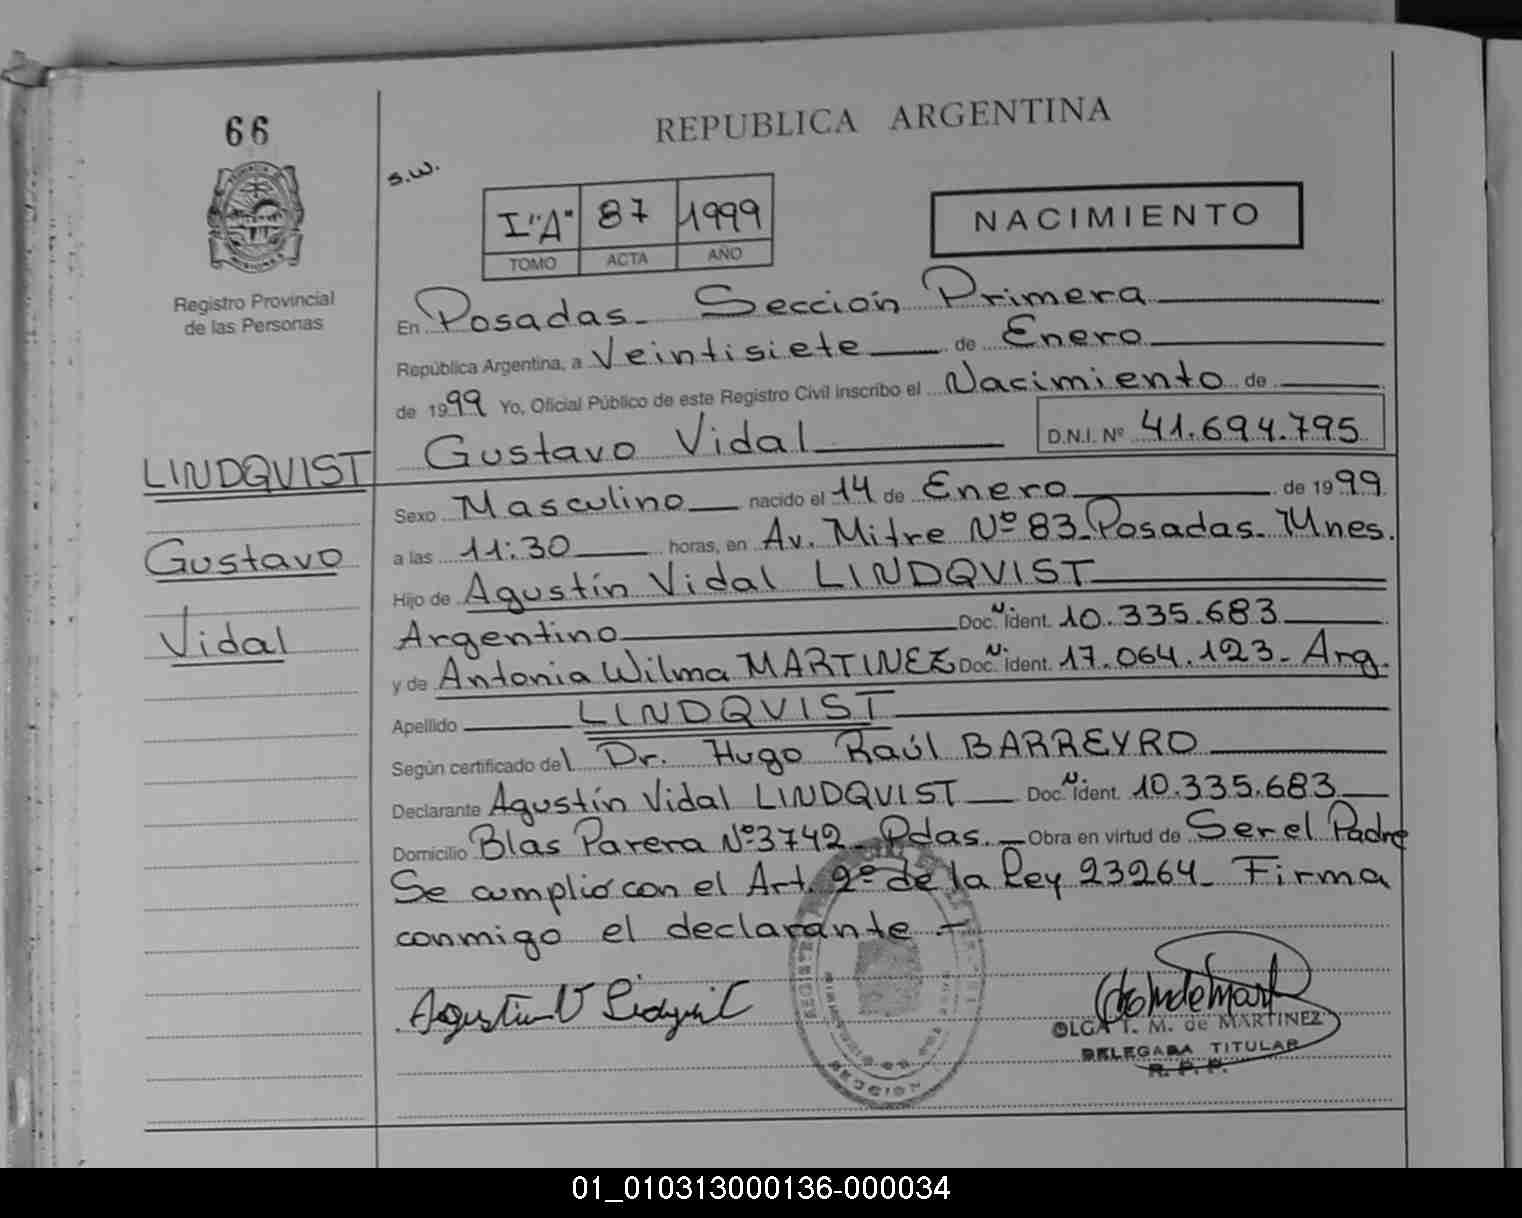 66
REPUBLICA ARGENTINA
s.w.
I "A" 87 1999
TOMO ACTA AÑO
NACIMIENTO
Registro Provincial
de las Personas
En Posadas. Sección Primera
República Argentina, a Veintisiete de Enero
de 1999 Yo, Oficial Público de este Registro Civil inscribo el Nacimiento de
Gustavo Vidal D.N.I. Nº 41.694.795
LINDQVIST
Gustavo
Vidal
Sexo Masculino nacido el 14 de Enero de 1999
a las 11:30 horas, en Av. Mitre Nº 83. Posadas. Mnes.
Hijo de Agustín Vidal LINDQVIST
Argentino Doc. N. Ident. 10.335.683
y de Antonia Wilma MARTINEZ Doc. N. Ident. 17.064.123. Arg.
Apellido LINDQVIST
Según certificado del Dr. Hugo Raúl BARREYRO
Declarante Agustín Vidal LINDQVIST Doc. N. Ident. 10.335.683
Domicilio Blas Parera Nº 3742. Pdas. Obra en virtud de Ser el Padre
Se cumplió con el Art. 2º de la Ley 23264. Firma
conmigo el declarante -
Agustín V Lindqvist
OLGA T. M. de MARTINEZ
DELEGADA TITULAR
R. P. P.
SECCION
01_010313000136-000034